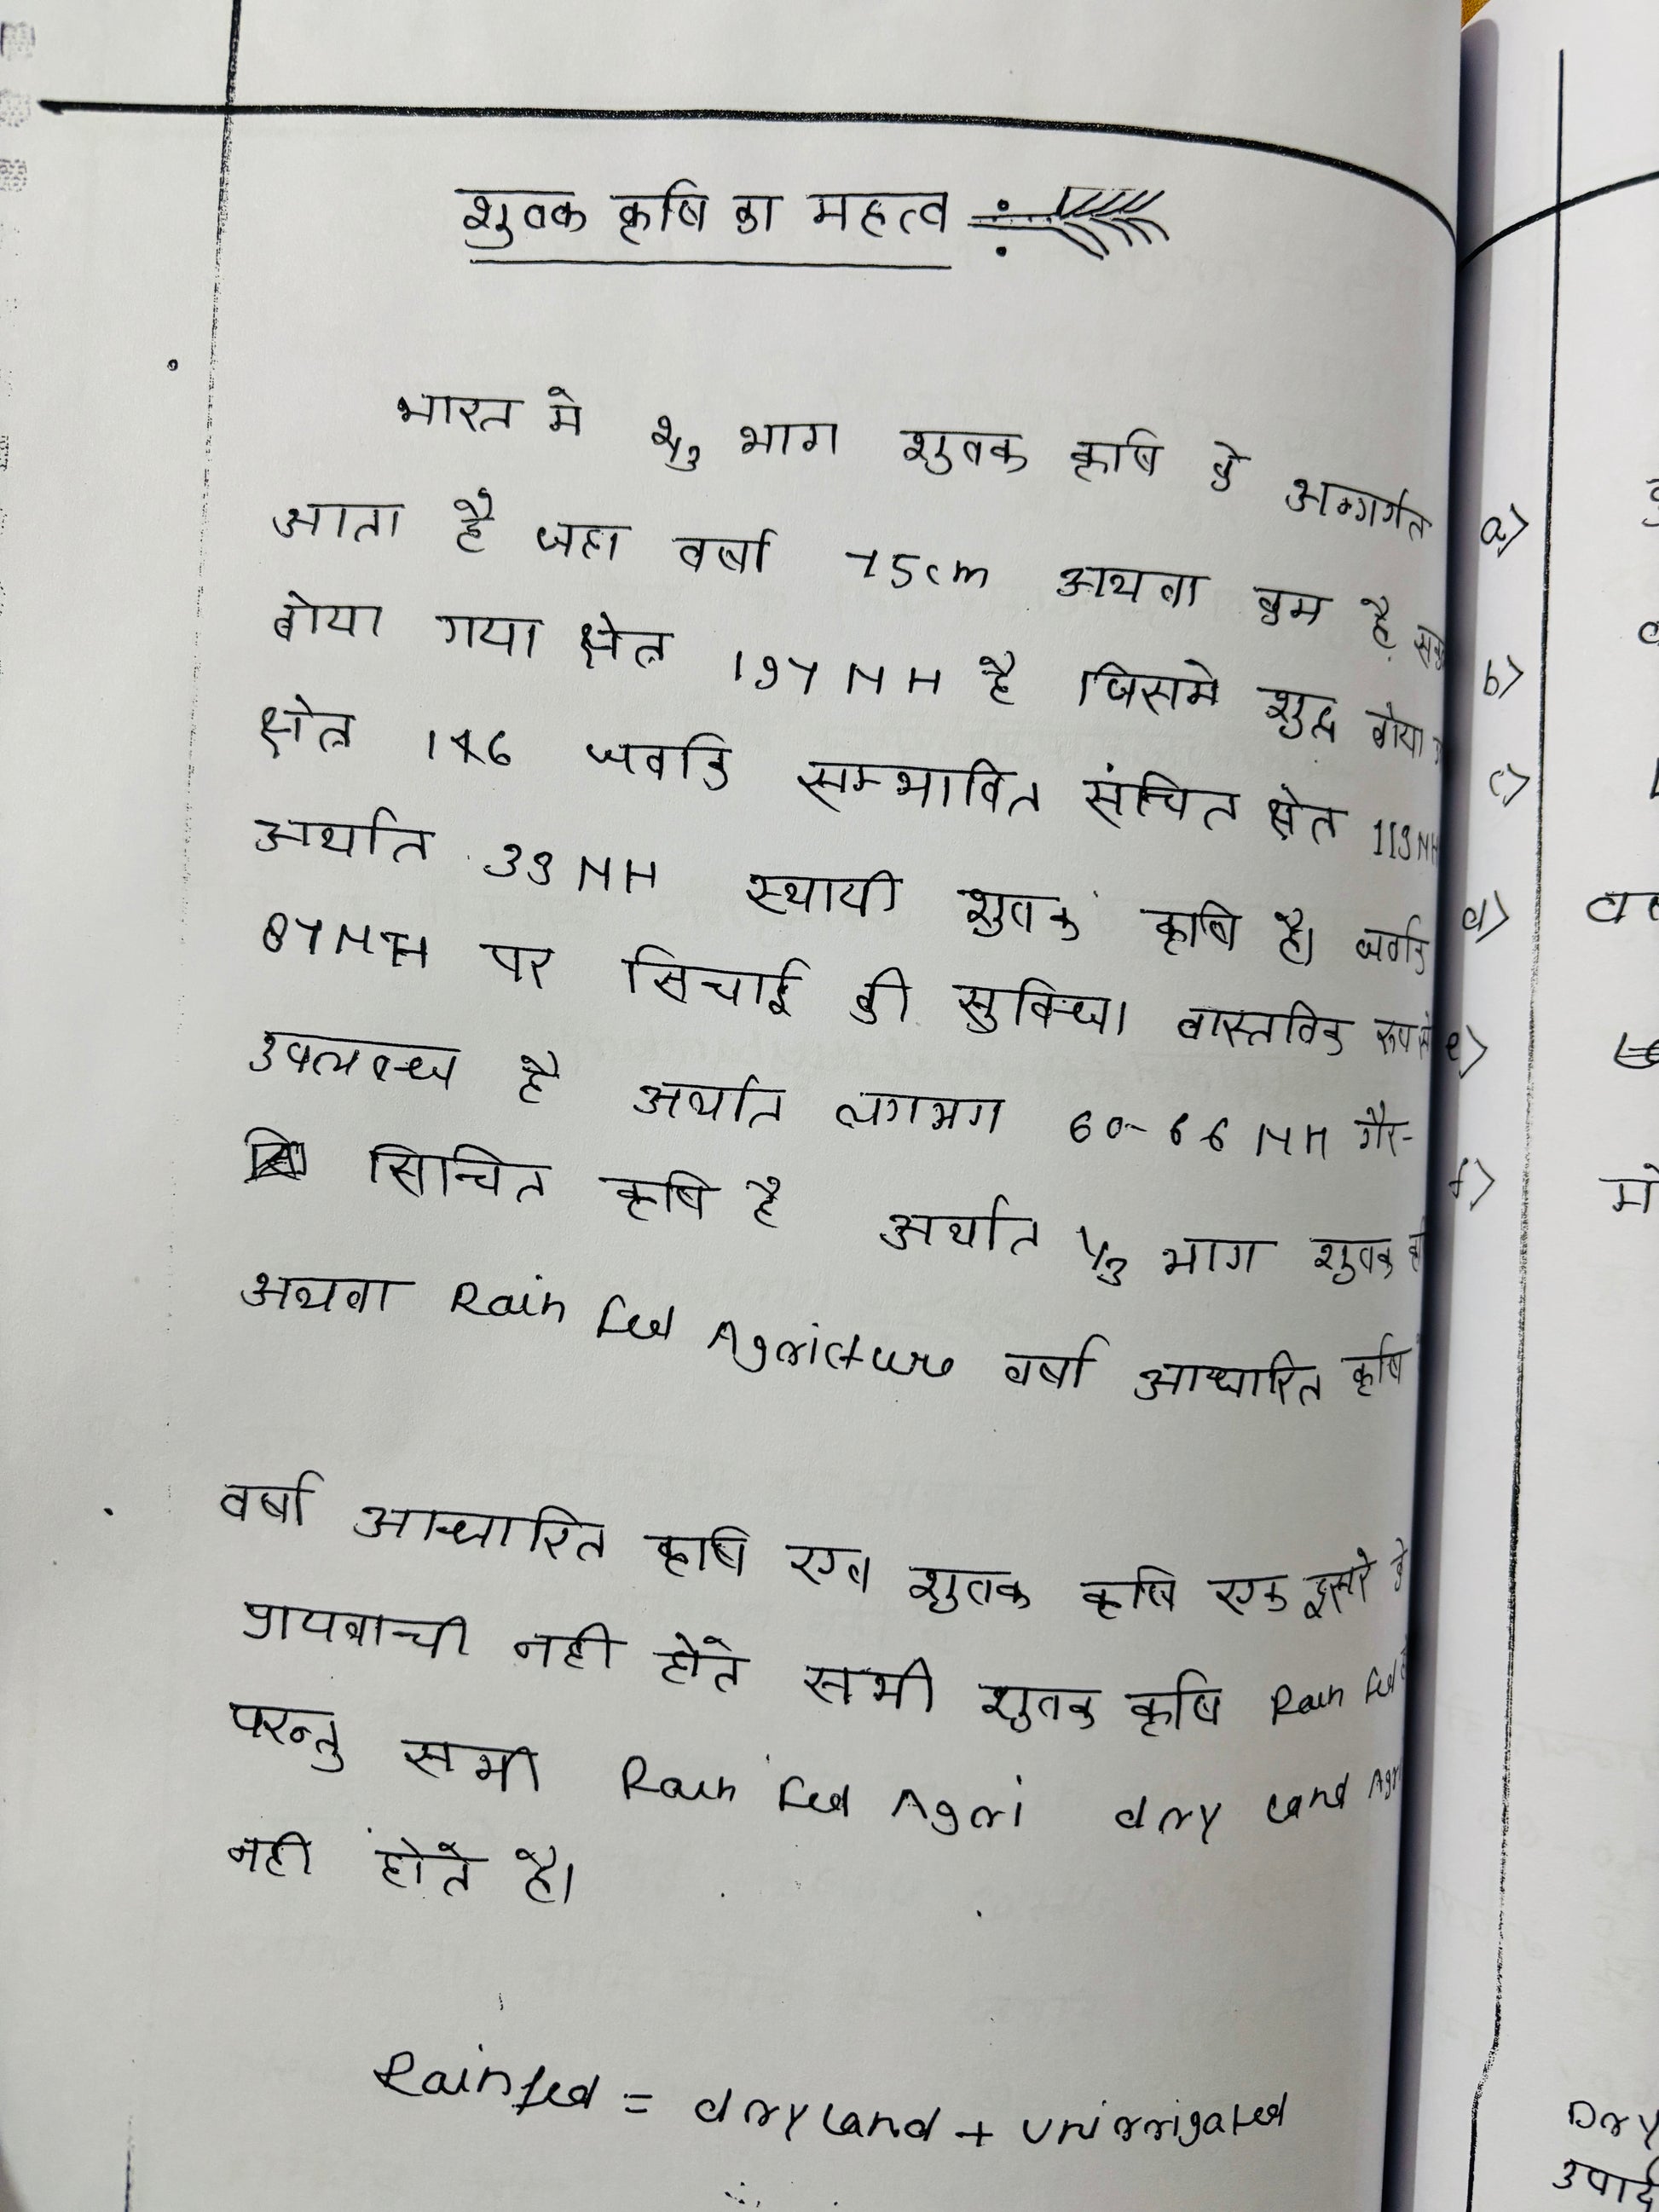 शुवक कृषि का महत्व
भारत मे 2/3 भाग शुवक कृषि के अन्तर्गत
आता है जहा वर्षा 75cm अथवा कम है,
बोया गया क्षेत्र 197 MH है जिसमे शुद्ध बोया
क्षेत्र 146 जबकि सम्भावित संचित क्षेत्र 113 MH
अर्थात 33 MH स्थायी शुवक कृषि है। जबकि
87 MH पर सिचाई की सुविधा वास्तविक रूप से
उपलब्ध है अर्थात लगभग 60-66 MH गैर-
सिन्चित कृषि है अर्थात 1/3 भाग शुवक
अथवा Rain fed Agricture वर्षा आधारित कृषि
वर्षा आधारित कृषि एवं शुवक कृषि एक दूसरे के
प्रायवाची नही होते सभी शुवक कृषि Rain fed
परन्तु सभी Rain fed Agri dry land Agri
नही होते है।
Rainfed = dryland + unirrigated
a)
b)
c)
d)
e)
f)
Dry